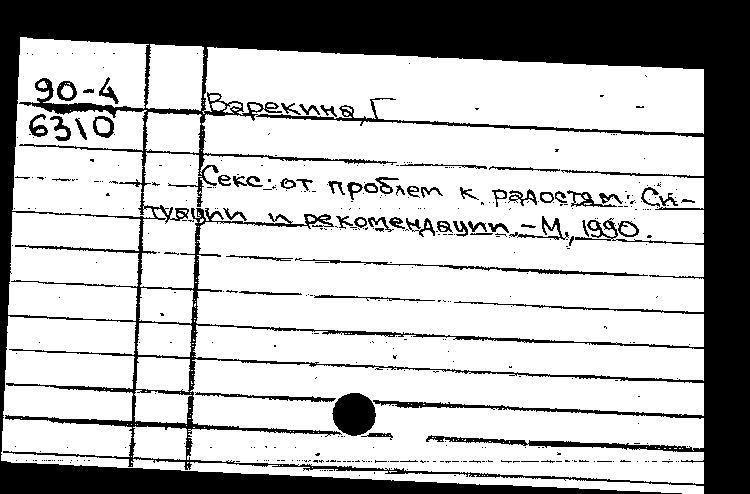 90-4
6310
Варекина, Г
Секс: от проблем к радостям: Си-
туации и рекомендации.-М., 1990.